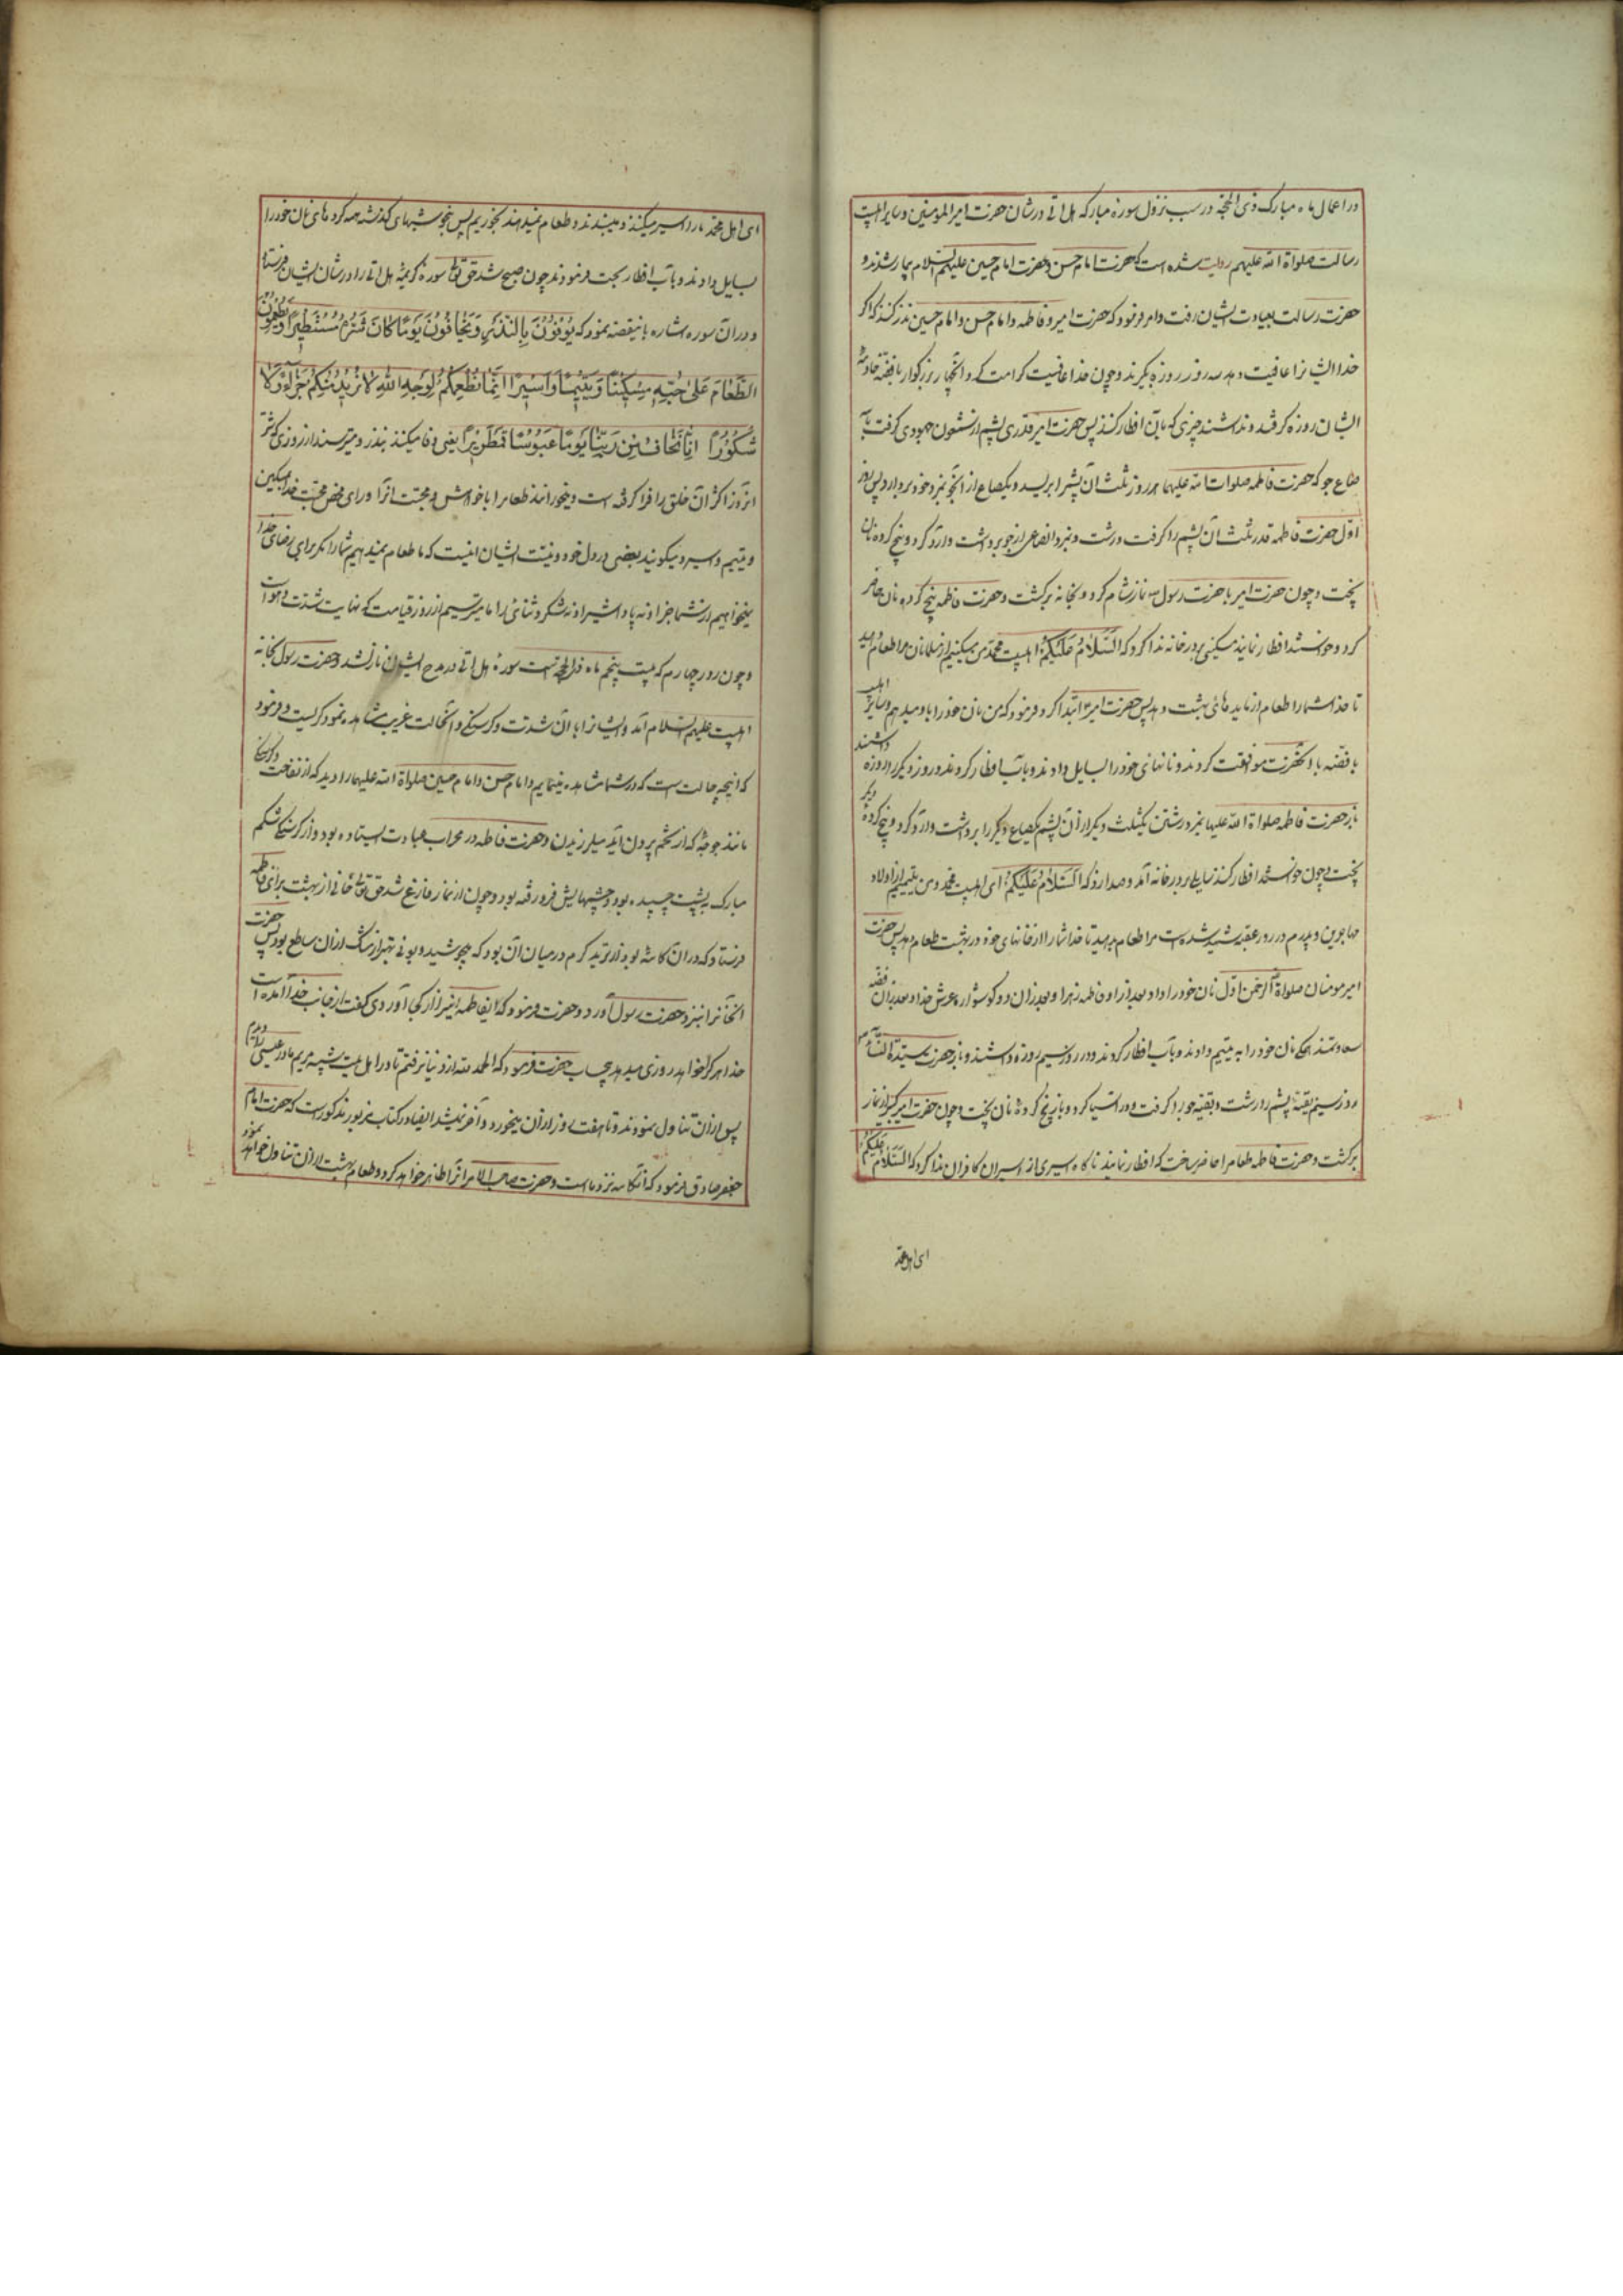 در اعمال ماه مبارک ذی الحجه در سبب نزول سوره مبارکه هل اتی در شان حضرت امیرالمومنین و سایر اهلبیت
رسالت صلواة الله علیهم روایت شده است که حضرت امام حسن و حضرت امام حسین علیهم السلام بیمار شدند و
حضرت رسالت بعیادت ایشان رفت و امر فرمود که حضرت امیر و فاطمه و امام حسن و امام حسین نذر کنند که اگر
خدا ایشانرا عافیت دهد سه روز روزه بگیرند و چون خدا عافیت کرامت کرد آنچهار بزرگوار با فضه خادمهٔ
ایشان روزه گرفتند و نداشتند چیزی که بآن افطار کنند پس حضرت امیر قدری پشم از شمعون جهودی گرفت با
صاع جو که حضرت فاطمه صلوات الله علیها هر روز ثلث آن پشم را بریسد و یکصاع از آنجو بمزد خود بردارد پس روز
اول حضرت فاطمه قدر ثلث آن پشم را گرفت و رشت و بمزد آن صاعی از جو برداشت و آرد کرد و پنج گرده نان
پخت و چون حضرت امیر با حضرت رسول نماز شام کرد و بخانه برگشت و حضرت فاطمه پنج گرده نان حاضر
کرد و خواستند افطار نمایند مسکینی بر در خانه ندا کرد که السَّلَامُ عَلَیْکُمْ اهلبیت محمد من مسکینم از مسلمانان مرا طعام دهید
تا خدا شما را طعام از مایده های بهشت دهد پس حضرت امیر ابتدا کرد و فرمود که من نان خود را باو میدهم و سایر اهلبیت
با فضه با آنحضرت موافقت کردند و نانهای خود را بسایل دادند و بآب افطار کردند و روز دیگر را روزه داشتند
باز حضرت فاطمه صلواة الله علیها بمزد رشتن یکثلث دیگر از آن پشم یکصاع دیگر را برداشت و آرد کرد و پنج گردهٔ دیگر
پخت و چون خواستند افطار کنند سایلی بر در خانه آمد و صدا زد که السَّلَامُ عَلَیْکُمْ ای اهلبیت محمد من یتیمم از اولاد
مهاجرین و پدرم در روز عقبه شهید شده است مرا طعام بدهید تا خدا شما را از خانهای خود در بهشت طعام دهد پس حضرت
امیر مومنان صلواة الرحمن اول نان خود را داد و بعد از او فاطمه زهرا و بعد از آن دو گوشواره عرش خدا و بعد از آن فضه
سعادتمند همگی نان خود را به یتیم دادند و بآب افطار کردند و در روز سیم روزه داشتند و باز حضرت سیدة النساء
روز سیم بقیه پشم را رشت و بقیه جو را گرفت و در آسیا کرد و باز پنج گردهٔ نان پخت و چون حضرت امیر از نماز
برگشت و حضرت فاطمه طعام را حاضر ساخت که افطار نمایند ناگاه اسیری از اسیران کافران ندا کرد که السَّلَامُ عَلَیْکُمْ
ای اهل محمد
ای اهل محمد ما را اسیر میکنند و میبندند و طعام نمیدهند که بخوریم پس بنحو شبهای گذشته همه گرده های نان خود را
بسایل دادند و بآب افطار فرمودند چون صبح شد حق تعالی سوره کریمهٔ هل اتی را در شان ایشان فرستاد
و در آن سوره اشاره باینقصه نمود که یُوفُونَ بِالنَّذْرِ وَیَخَافُونَ یَوْمًا کَانَ شَرُّهُ مُسْتَطِیرًا وَیُطْعِمُونَ
الطَّعَامَ عَلَی حُبِّهِ مِسْکِینًا وَیَتِیمًا وَأَسِیرًا إِنَّمَا نُطْعِمُکُمْ لِوَجْهِ اللهِ لَا نُرِیدُ مِنْکُمْ جَزَاءً وَلَا
شُکُورًا إِنَّا نَخَافُ مِنْ رَبِّنَا یَوْمًا عَبُوسًا قَمْطَرِیرًا یعنی وفا میکنند بنذر و میترسند از روزی که شر
آنروز اکثر آن خلق را فرا گرفته است و میخورانند طعام را با خواهش و محبت آنرا و برای محض محبت خدا مسکین
و یتیم و اسیر و میگویند بعضی در دل خود و نیت ایشان اینست که ما طعام نمیدهیم شما را مگر برای رضای خدا
نمیخواهیم از شما جزا و نه پاداشی را و نه شکر و ثنائی را ما میترسیم از روز قیامت که نهایت شدت و هول است
و چون روز چهارم که بیست پنجم ماه ذی الحجه است سورهٔ هل اتی در مدح ایشان نازل شد و حضرت رسول بخانه
اهلبیت علیهم السلام آمد و ایشانرا با آن شدت و گرسنگی و آنحالت غریب مشاهده نمود گریست و فرمود
که اینچه حالت است که در شما مشاهده مینمایم و امام حسن و امام حسین صلواة الله علیهما را دید که از
مانند جوجهٔ که از تخم بیرون آید میلرزیدند و حضرت فاطمه در محراب عبادت ایستاده بود و از گرسنگی شکم
مبارکش به پشت چسپیده بود و چشمهایش فرو رفته بود و چون از نماز فارغ شد حق تعالی خانی از بهشت برای فاطمه
فرستاد که در آن کاسه بود از ترید گرم در میان آن بود که میجوشید و بوئی بهتر از مشک از آن ساطع بود پس حضرت
آنخانرا بنزد حضرت رسول آورد و حضرت فرمود که ایفاطمه اینرا از کجا آوردی گفت از جانب خدا آمده است
خدا هر کرا خواهد روزی میدهد بیحساب حضرت فرمود که الحمد لله از دنیا نرفتم تا در اهل بیت شبیه مریم مادر عیسی را دیدم
پس از آن تناول نمودند و تا هفت روز از آن میخوردند و آخر نمیشد ایضا در کتاب مزبور مذکور است که حضرت امام
جعفر صادق فرمود که آنکاسه نزد ماست و حضرت صاحب الامر آنرا ظاهر خواهد کرد و طعام بهشت از آن تناول خواهد نمود